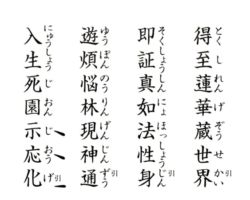 とくしれんげぞうせかい引
得至蓮華蔵世界
そくしょうしんにょほっしょうじん引
即証真如法性身
ゆうぼんのうりんげんじんずう引
遊煩悩林現神通
にゅうしょうじおんじおうげ引
入生死園示応化